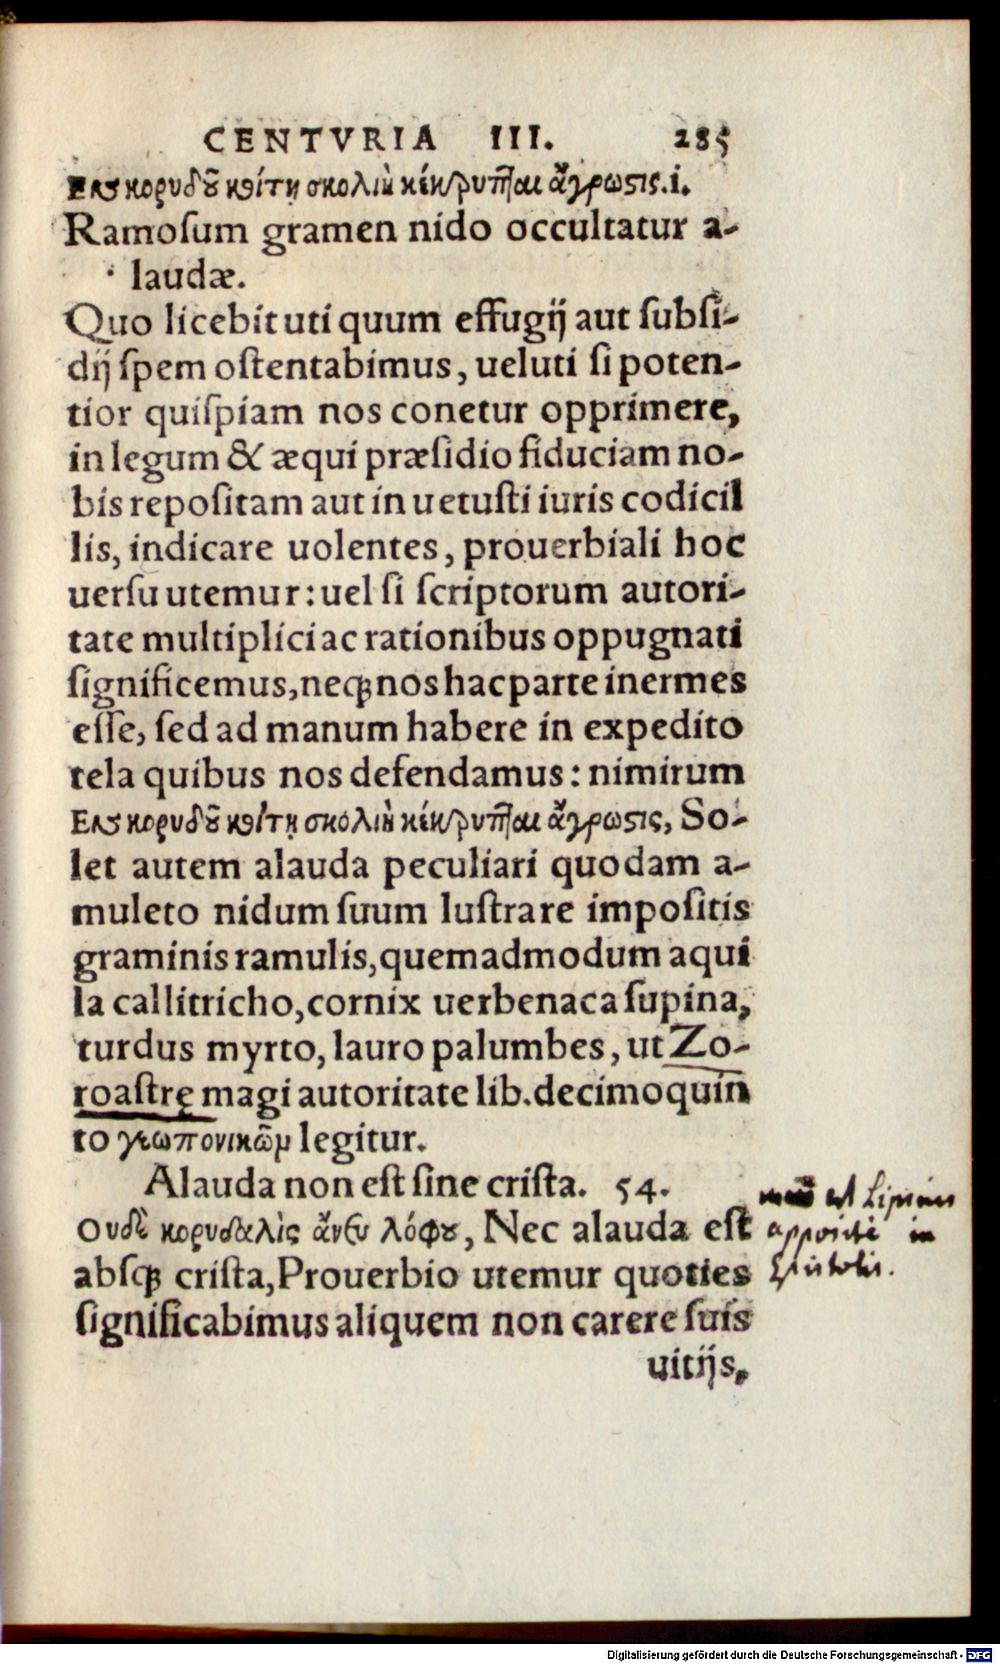 CENTVRIA III. 285
Εν κορυδοῦ κοίτῃ σκολιὴ κέκρυπται ἄγρωστις.i.
Ramoſum gramen nido occultatur a-
laudæ.
Quo licebit uti quum effugij aut ſubſi-
dij ſpem oſtentabimus, ueluti ſi poten-
tior quiſpiam nos conetur opprimere,
in legum & æqui præſidio fiduciam no-
bis repoſitam aut in uetuſti iuris codicil
lis, indicare uolentes, prouerbiali hoc
uerſu utemur: uel ſi ſcriptorum autori-
tate multiplici ac rationibus oppugnati
ſignificemus, neqꝫ nos hac parte inermes
eſſe, ſed ad manum habere in expedito
tela quibus nos defendamus: nimirum
Εν κορυδοῦ κοίτῃ σκολιὴ κέκρυπται ἄγρωστις, So-
let autem alauda peculiari quodam a-
muleto nidum ſuum luſtrare impoſitis
graminis ramulis, quemadmodum aqui
la callitricho, cornix uerbenaca ſupina,
turdus myrto, lauro palumbes, ut Zo-
roaſtrę magi autoritate lib. decimoquin
to γεωπονικῶμ legitur.
Alauda non eſt ſine criſta. 54.
Ουδὲ κορυδαλὶς ἄνευ λόφου, Nec alauda eſt
abſqꝫ criſta, Prouerbio utemur quoties
ſignificabimus aliquem non carere ſuis
uitijs.
est Lipsius
apposite in
Epistolis.
Digitalisierung gefördert durch die Deutsche Forschungsgemeinschaft - DFG